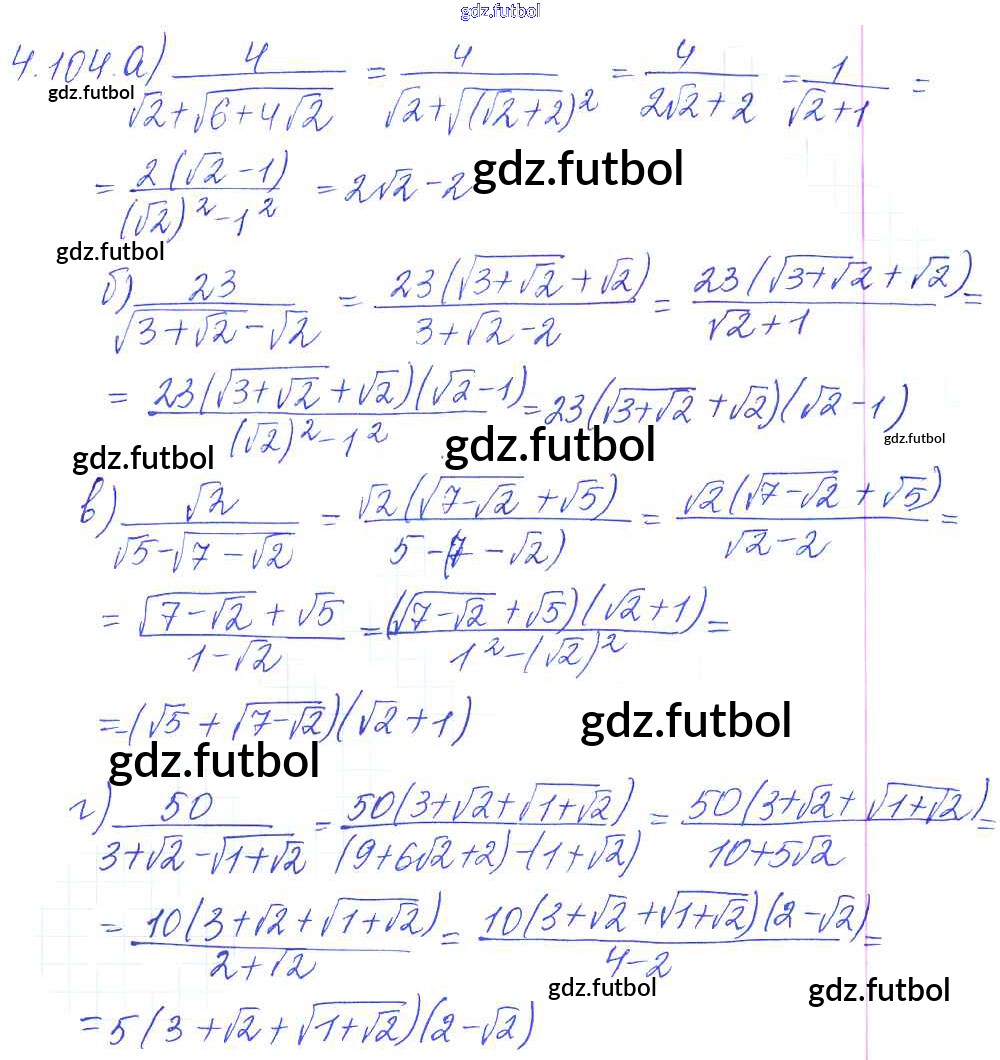 gdz.futbol
4.104. а) 4/(√2+√(6+4√2)) = 4/(√2+√((√2+2)²)) = 4/(2√2+2) = 1/(√2+1) =
gdz.futbol
= 2(√2-1)/((√2)²-1²) = 2√2-2 gdz.futbol
gdz.futbol
б) 23/(√(3+√2)-√2) = 23(√(3+√2)+√2)/(3+√2-2) = 23(√(3+√2)+√2)/(√2+1) =
= 23(√(3+√2)+√2)(√2-1)/((√2)²-1²) = 23(√(3+√2)+√2)(√2-1)
gdz.futbol gdz.futbol gdz.futbol
в) √2/(√5-√(7-√2)) = √2(√(7-√2)+√5)/(5-(7-√2)) = √2(√(7-√2)+√5)/(√2-2) =
= (√(7-√2)+√5)/(1-√2) = (√(7-√2)+√5)(√2+1)/(1²-(√2)²) =
= -(√5+√(7-√2))(√2+1) gdz.futbol
gdz.futbol
г) 50/(3+√2-√(1+√2)) = 50(3+√2+√(1+√2))/((9+6√2+2)-(1+√2)) = 50(3+√2+√(1+√2))/(10+5√2) =
= 10(3+√2+√(1+√2))/(2+√2) = 10(3+√2+√(1+√2))(2-√2)/(4-2) =
gdz.futbol gdz.futbol
= 5(3+√2+√(1+√2))(2-√2)